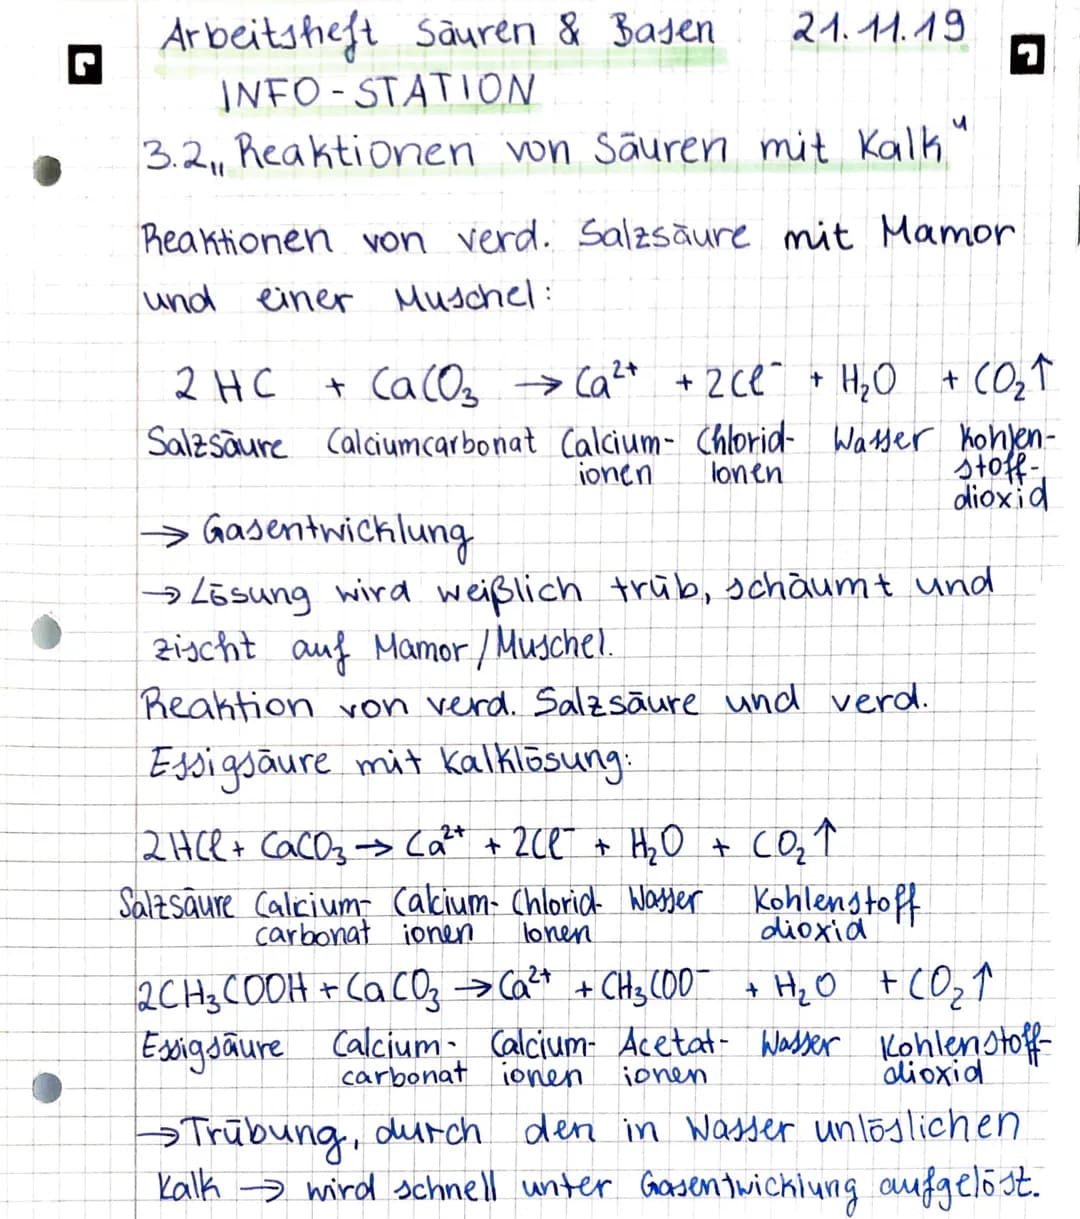 Arbeitsheft Säuren & Basen 21.11.19
INFO-STATION
3.2 „Reaktionen von Säuren mit Kalk"
Reaktionen von verd. Salzsäure mit Mamor
und einer Muschel:
2 HC + CaCO₃ → Ca²⁺ + 2Cl⁻ + H₂O + CO₂↑
Salzsäure Calciumcarbonat Calcium- Chlorid- Wasser Kohlen-
ionen Ionen stoff-
dioxid
→ Gasentwicklung
→ Lösung wird weißlich trüb, schäumt und
zischt auf Mamor/Muschel.
Reaktion von verd. Salzsäure und verd.
Essigsäure mit Kalklösung:
2HCl + CaCO₃ → Ca²⁺ + 2Cl⁻ + H₂O + CO₂↑
Salzsäure Calcium- Calcium- Chlorid- Wasser Kohlenstoff
carbonat ionen Ionen dioxid
2CH₃COOH + CaCO₃ → Ca²⁺ + CH₃COO⁻ + H₂O + CO₂↑
Essigsäure Calcium- Calcium- Acetat- Wasser Kohlenstoff-
carbonat ionen ionen dioxid
→ Trübung, durch den in Wasser unlöslichen
Kalk → wird schnell unter Gasentwicklung aufgelöst.